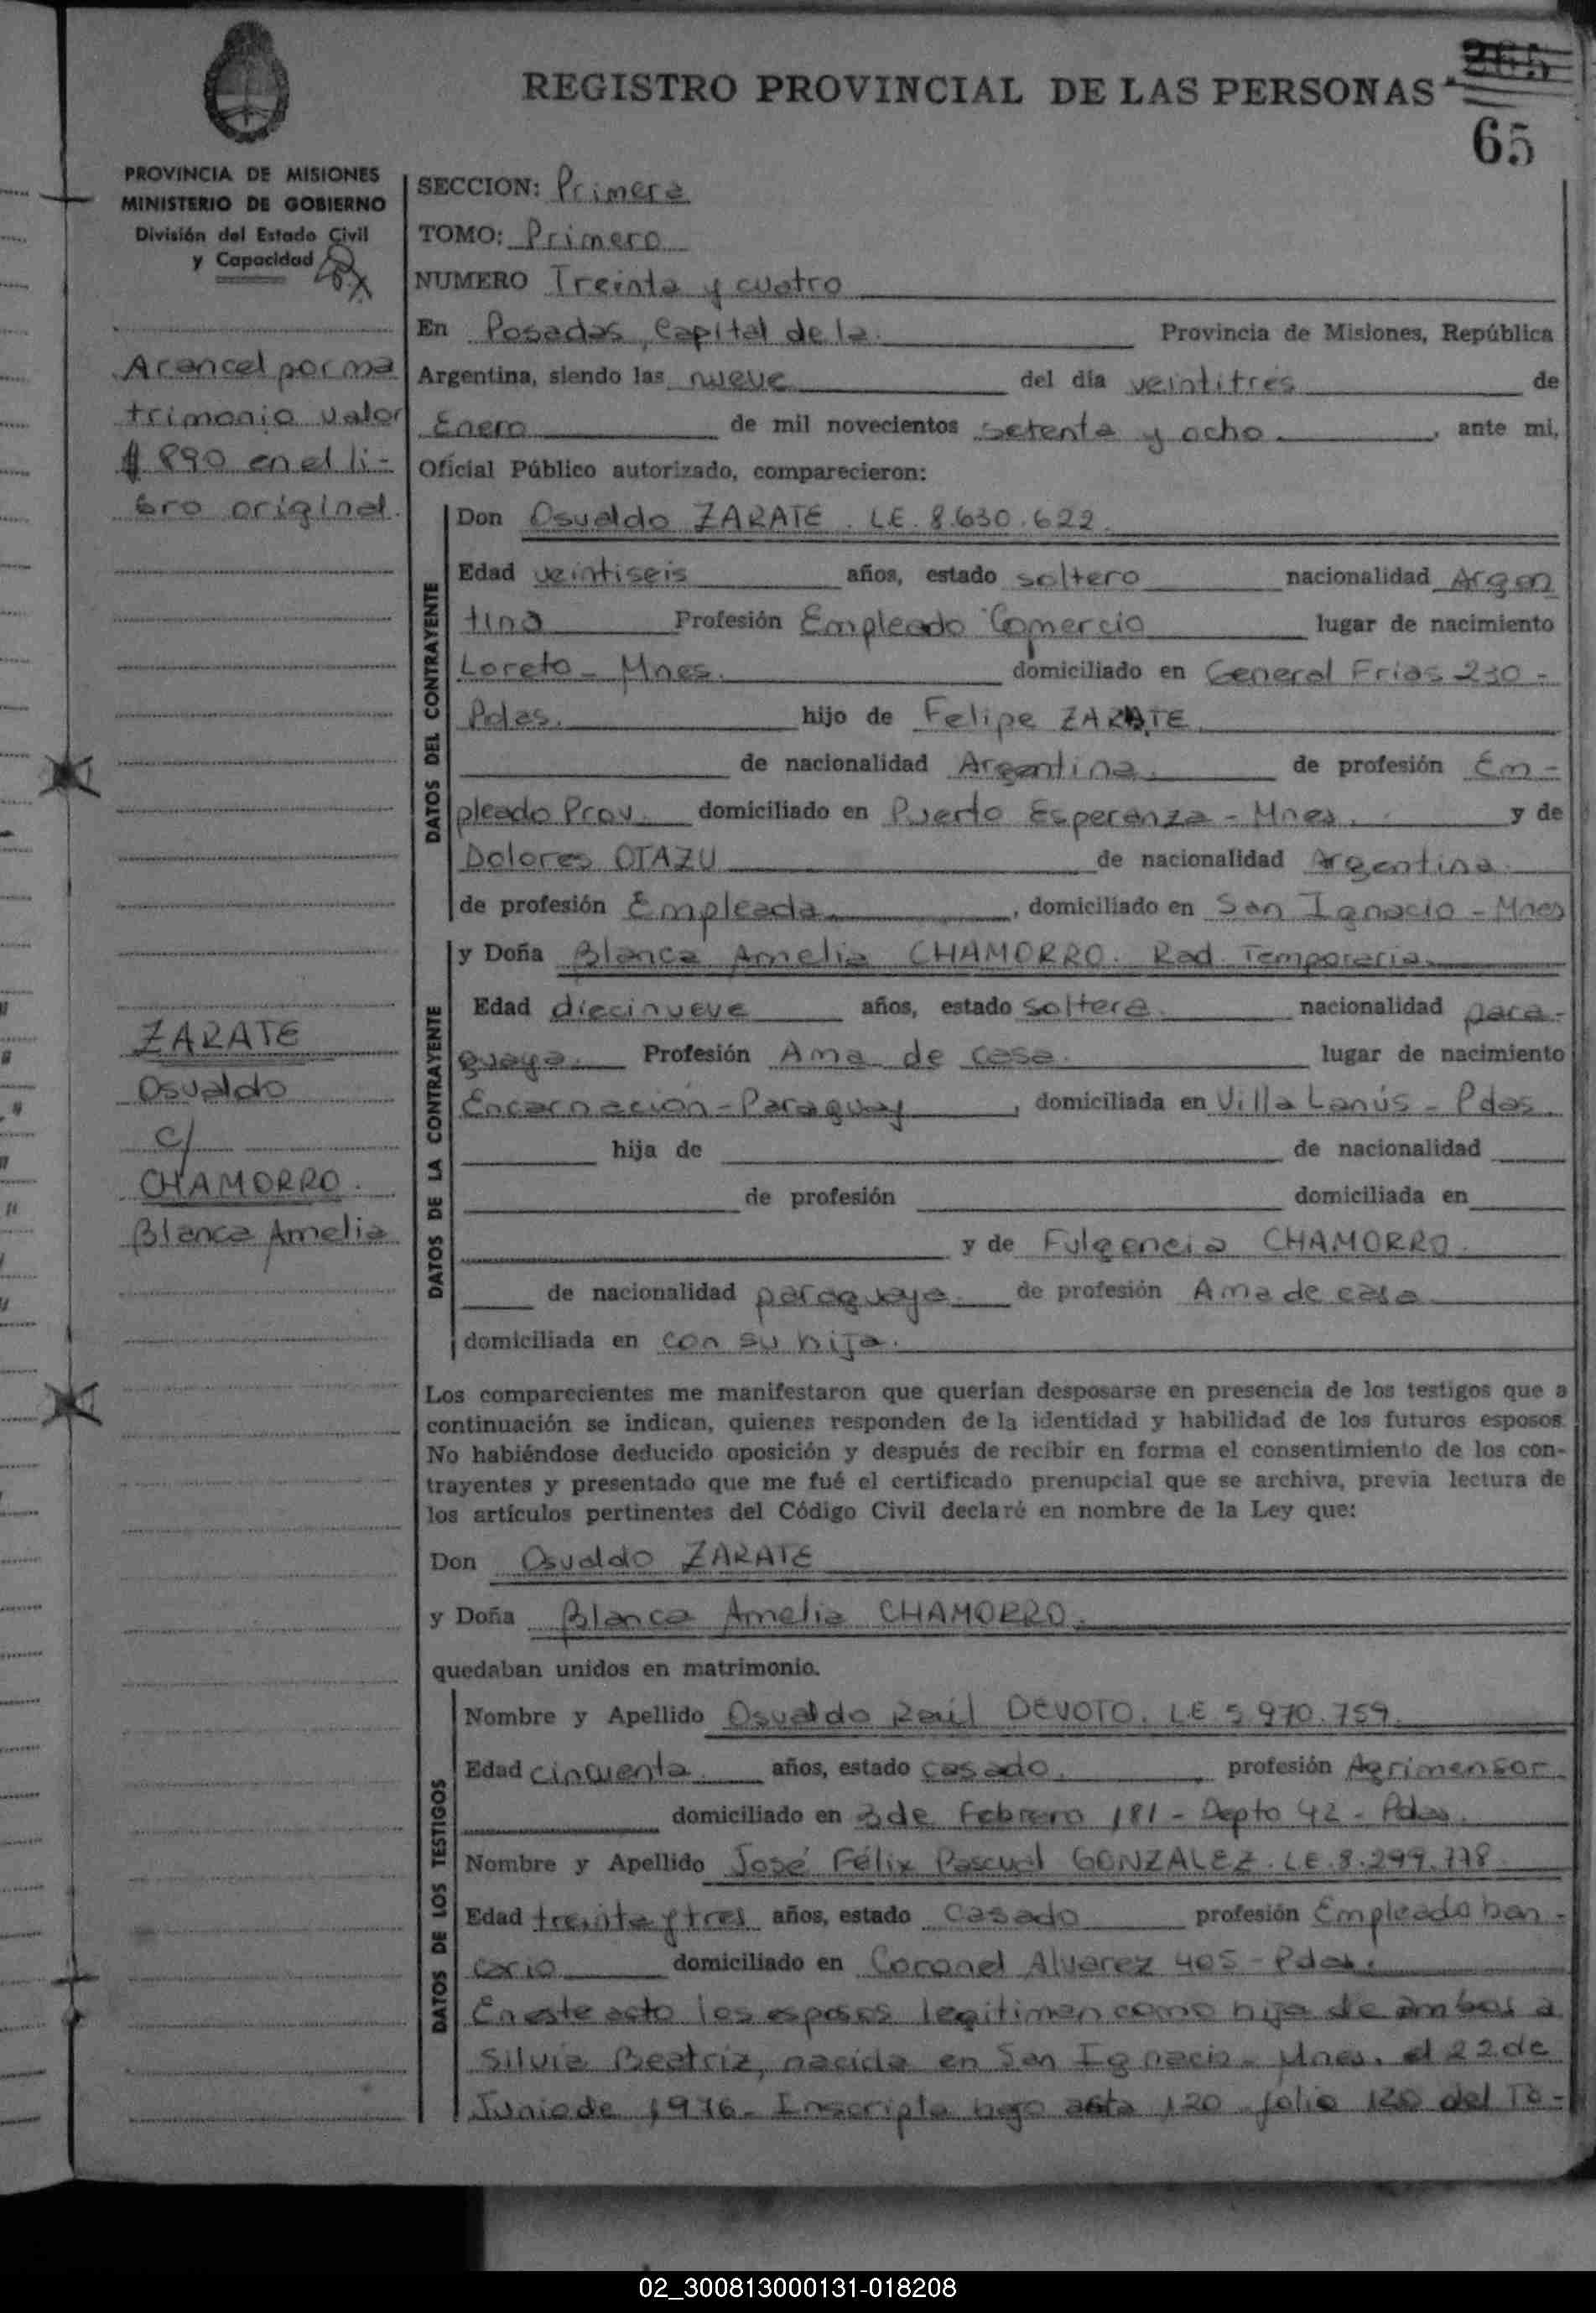 REGISTRO PROVINCIAL DE LAS PERSONAS
265
65
PROVINCIA DE MISIONES
MINISTERIO DE GOBIERNO
División del Estado Civil
y Capacidad
Arancel por ma
trimonio valor
$ 890 en el li-
bro original.
ZARATE
Osvaldo
c/
CHAMORRO.
Blanca Amelia
SECCION: Primera
TOMO: Primero
NUMERO Treinta y cuatro
En Posadas, Capital de la Provincia de Misiones, República
Argentina, siendo las nueve del día veintitres de
Enero de mil novecientos setenta y ocho, ante mi,
Oficial Público autorizado, comparecieron:
DATOS DEL CONTRAYENTE
Don Osvaldo ZARATE. LE. 8.630.622.
Edad veintiseis años, estado soltero nacionalidad Argen
tina Profesión Empleado Comercio lugar de nacimiento
Loreto - Mnes. domiciliado en General Frias 230 -
Pdas. hijo de Felipe ZARATE
de nacionalidad Argentina. de profesión Em-
pleado Prov. domiciliado en Puerto Esperanza - Mnes. y de
Dolores OTAZU de nacionalidad Argentina.
de profesión Empleada, domiciliado en San Ignacio - Mnes
DATOS DE LA CONTRAYENTE
y Doña Blanca Amelia CHAMORRO. Rad. Temporaria.
Edad diecinueve años, estado soltera. nacionalidad para-
guaya. Profesión Ama de casa. lugar de nacimiento
Encarnación - Paraguay, domiciliada en Villa Lanús - Pdas.
hija de de nacionalidad
de profesión domiciliada en
y de Fulgencia CHAMORRO.
de nacionalidad paraguaya. de profesión Ama de casa
domiciliada en con su hija.
Los comparecientes me manifestaron que querían desposarse en presencia de los testigos que a
continuación se indican, quienes responden de la identidad y habilidad de los futuros esposos.
No habiéndose deducido oposición y después de recibir en forma el consentimiento de los con-
trayentes y presentado que me fué el certificado prenupcial que se archiva, previa lectura de
los artículos pertinentes del Código Civil declaré en nombre de la Ley que:
Don Osvaldo ZARATE
y Doña Blanca Amelia CHAMORRO.
quedaban unidos en matrimonio.
DATOS DE LOS TESTIGOS
Nombre y Apellido Osvaldo Raúl DEVOTO. LE 5 970.759.
Edad cincuenta. años, estado casado. profesión Agrimensor
domiciliado en 3 de Febrero 181 - Depto 42 - Pdas.
Nombre y Apellido José Félix Pascual GONZALEZ. LE. 8.299.778
Edad treinta y tres años, estado Casado profesión Empleado ban-
cario domiciliado en Coronel Alvarez 405 - Pdas.
En este acto los esposos legitiman como hija de ambos a
Silvia Beatriz, nacida en San Ignacio - Mnes. el 22 de
Junio de 1976. Inscripta bajo acta 120 folio 120 del To-
02_300813000131-018208